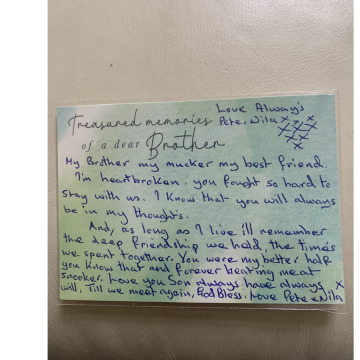 Treasured memories
of a dear Brother
Love Always
Pete, Nila x
My Brother my mucker my best friend.
I'm heartbroken. you fought so hard to
stay with us. I know that you will always
be in my thoughts.
And, as long as I live i'll remember
the deep friendship we held, the times
we spent together. You were my better half
you know that and forever beating me at
snooker. Love you Son always have always x
will, Till we meet again, God Bless. Love Pete & Nila